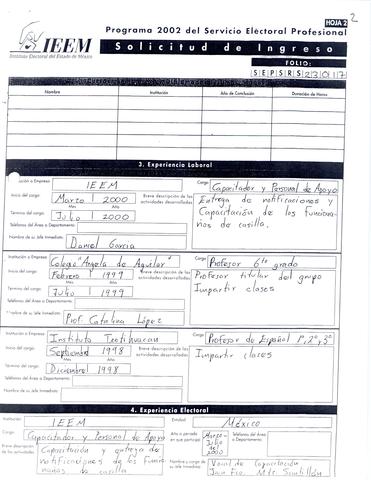 HOJA 2
2
Programa 2002 del Servicio Electoral Profesional
IEEM
Instituto Electoral del Estado de México
Solicitud de Ingreso
FOLIO:
SEPSRS
Nombre Institución Año de Conclusión Duración de Horas
3. Experiencia Laboral
IEEM
Cargo Capacitador y Personal de Apoyo
Inicio del cargo: Marzo 2000
Mes Año
Breve descripción de las actividades desarrolladas
Entrega de notificaciones y
Capacitación de los funciona-
rios de casilla.
Término del cargo: Julio 2000
Mes Año
Teléfonos del Área o Departamento:
Nombre de su Jefe Inmediato: Daniel García
Institución o Empresa: Colegio "Angela de Aguilar"
Cargo Profesor 6to grado
Inicio del cargo: Febrero 1999
Breve descripción de las actividades desarrolladas
Profesor titular del grupo
Impartir clases
Término del cargo: Julio 1999
Mes Año
Teléfonos del Área o Departamento:
Nombre de su Jefe Inmediato: Prof. Catalina López
Institución o Empresa: Instituto Teotihuacan
Cargo Profesor de Español 1º, 2º, 3º
Inicio del cargo: Septiembre 1998
Breve descripción de las actividades desarrolladas
Impartir clases
Término del cargo: Diciembre 1998
Teléfonos del Área o Departamento:
Nombre de su Jefe Inmediato:
4. Experiencia Electoral
Institución: IEEM
Entidad: México
Cargo: Capacitador y Personal de Apoyo
Año o periodo en que participó: Marzo - Julio de 2000
Teléfonos del Área o Departamento:
Breve descripción de las actividades desarrolladas
Capacitación y entrega de
notificaciones de los funcio-
narios de casilla
Nombre y cargo de su Jefe Inmediato:
Vocal de Capacitación